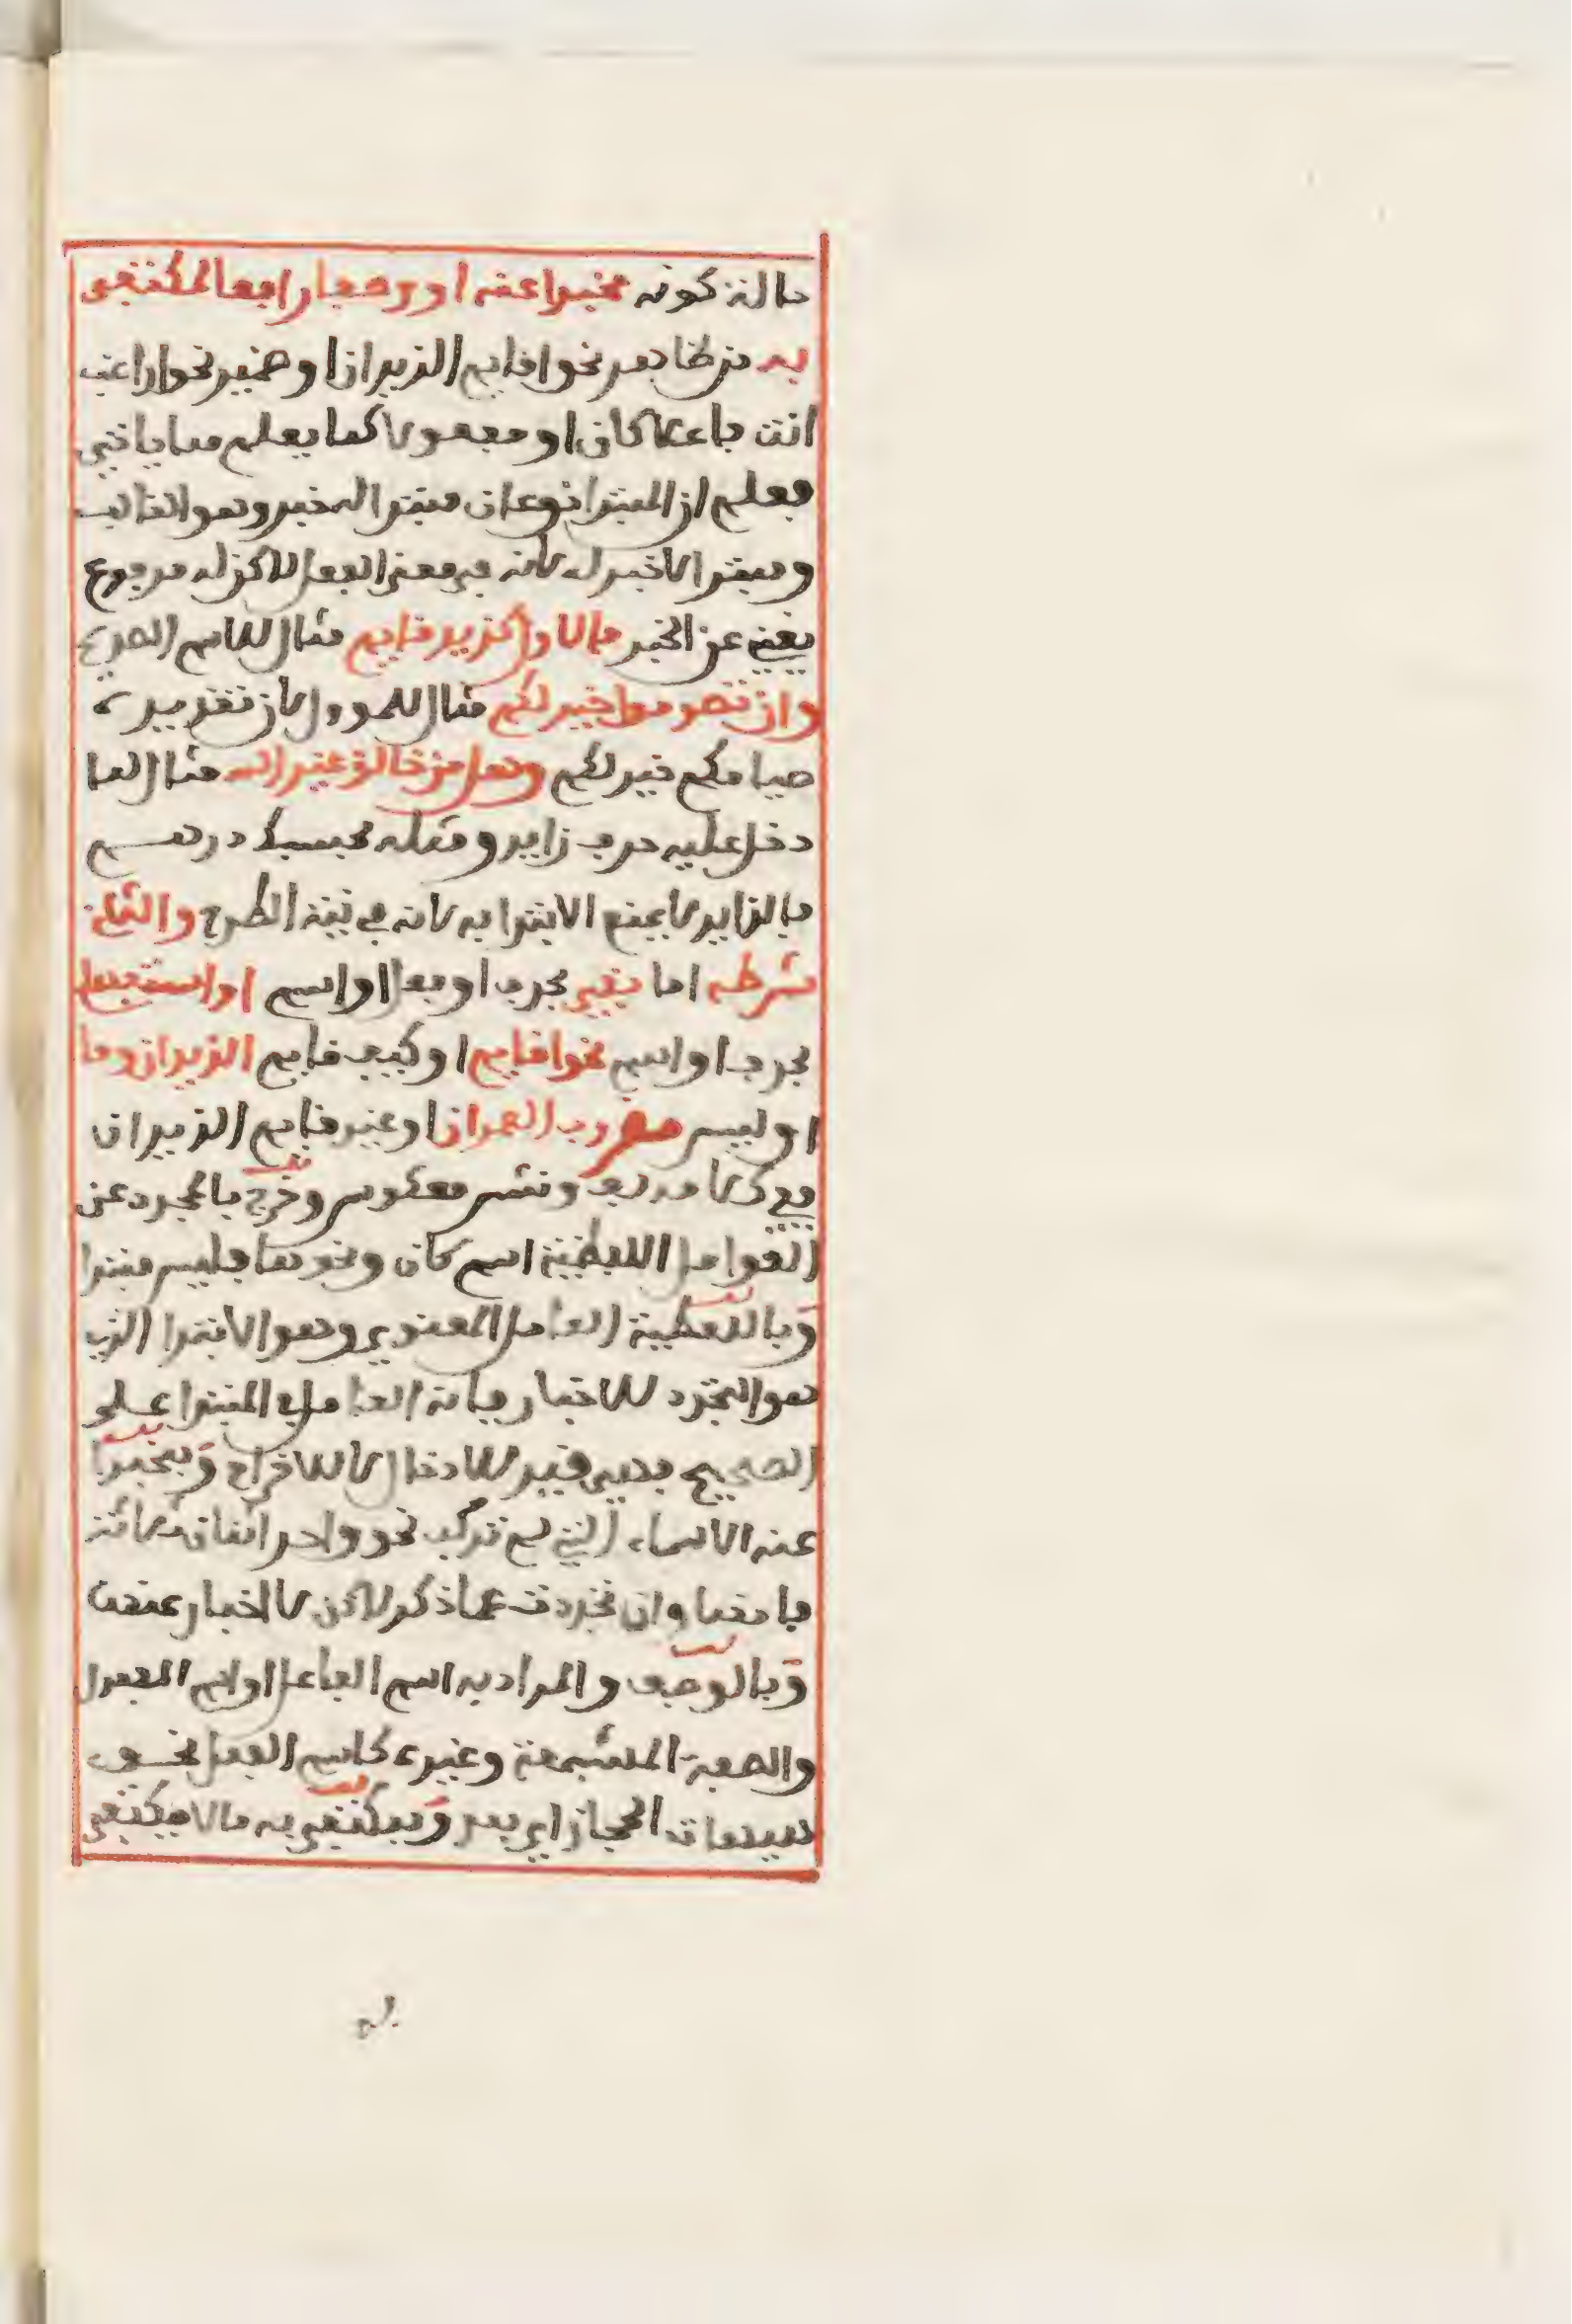 حالة كونه مخبرا عنه او وصفا رافعا لمكتفى
به من ظاهر نحو اقايم الزيدان او ضمير نحو اراغب
انت فاعلا كان او مفعولا كما يعلم مما ياتي
فعلم ان المبتدا نوعان مبتدا له خبر وهو الغالب
ومبتدا لا خبر له لانه في معنى الفعل لاكن له مرفوع
يغني عن الخبر فالاول كزيد قايم مثال للاسم الصريح
وان تصوموا خير لكم مثال للموول لان تقديره
صيامكم خير لكم وهل من خالق غير الله مثال لما
دخل عليه حرف زايد ومثله بحسبك درهم
فالزايد لا يمنع الابتدا به لانه في نية الطرح والثاني
شرطه اما بنفي بحرف او فعل او اسم او استفهام
بحرف او اسم نحو اقايم او كيف قايم الزيدان وما
او ليس مضروب العمران او غير قايم الزيدان
ففي كلامه لف ونشر معكوس وخرج بالمجرد عن
العوامل اللفظية اسم كان ونحوها فليس مبتدا
وباللفظية العامل المعنوي وهو الابتدا الذي
هو التجرد للاخبار فانه العامل في المبتدا على
الصحيح فهي قيد للادخال لا للاخراج وبمخبرا
عنه الاسماء التي لم تركب نحو واحد اثنان ثلاثة
فانها وان تجردت عما ذكر لاكن لا اخبار عنها
وبالوصف والمراد به اسم الفاعل او اسم المفعول
والصفة المشبهة وغيره كاسم الفعل نحو
هيهات الحجاز اي بعد وبمكتفى به ما لا يكتفى